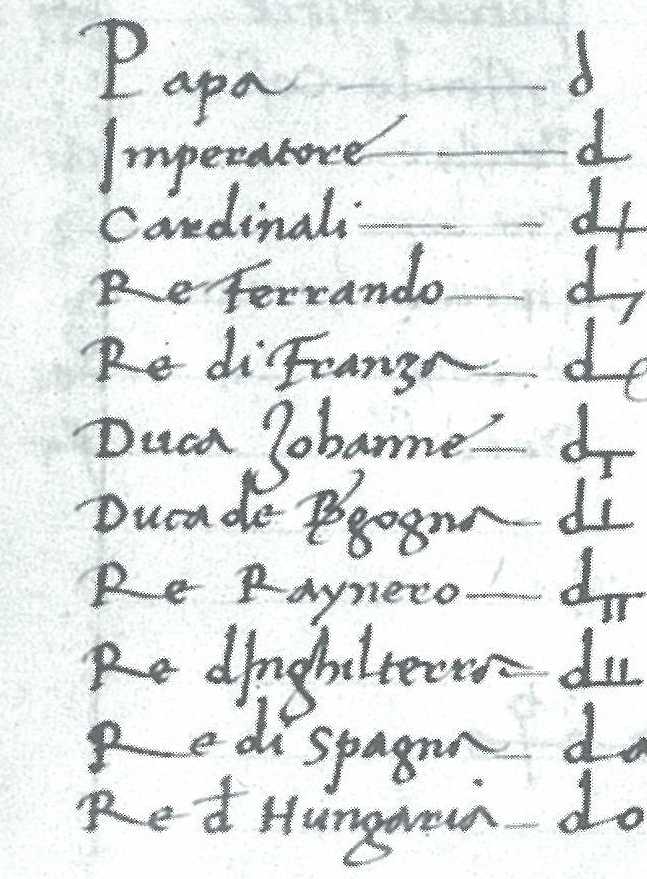 Papa d
Imperatore d
Cardinali d
Re Ferrando d
Re di Franza d
Duca Johanne d
Duca de Bgogna d
Re Raynero d
Re dInghilterra d
Re di Spagna d
Re d Hungaria d